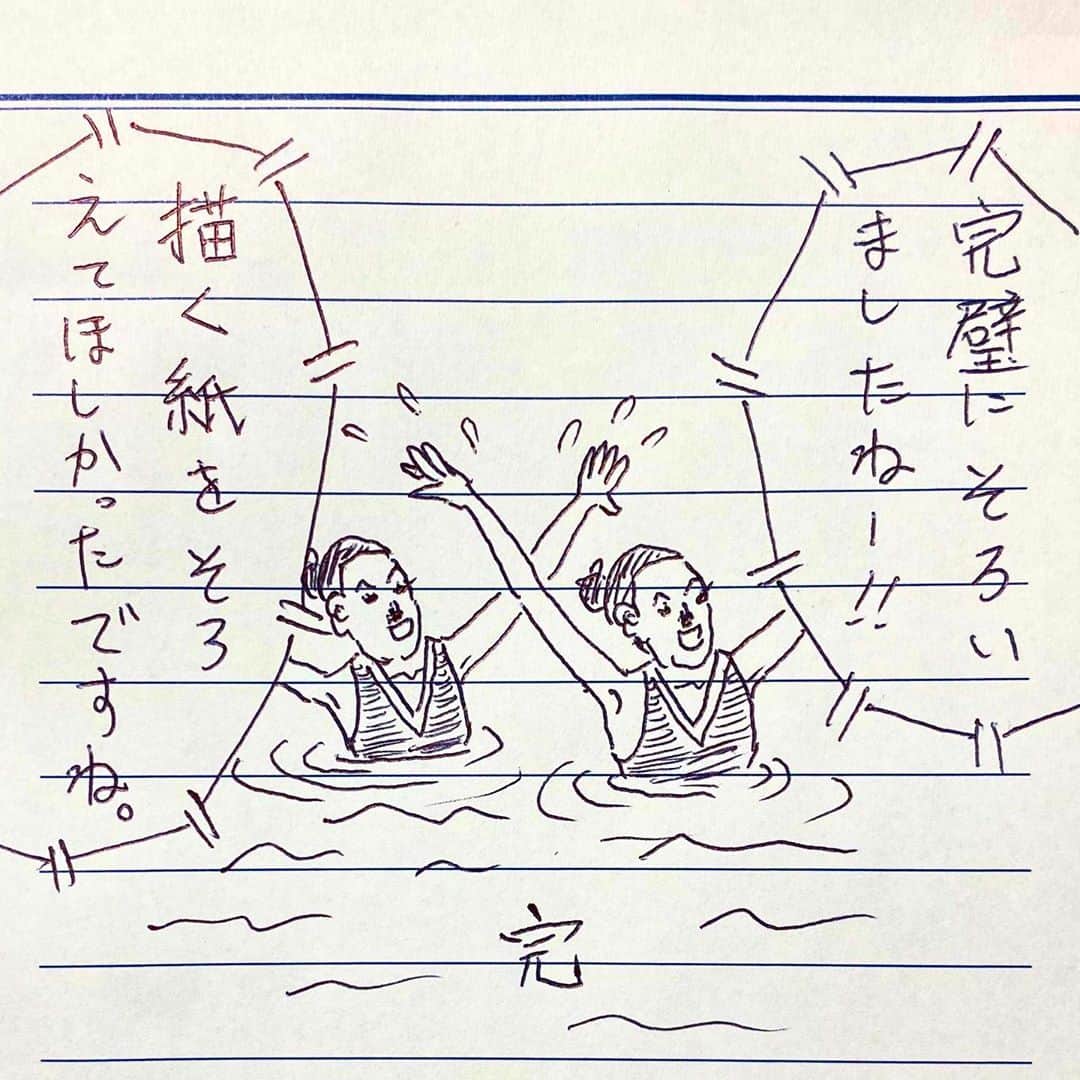 完璧にそろい
ましたねー!!
描く紙をそろ
えてほしかったですね。
完